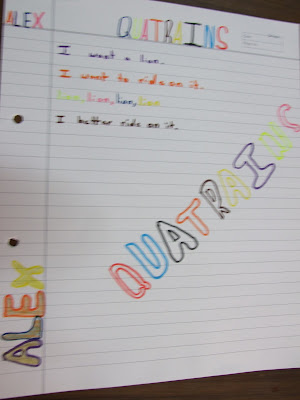 ALEX
QUATRAINS
I want a lion.
I want to ride on it.
Lion, lion, lion, lion
I better ride on it.
QUATRAINS
ALEX